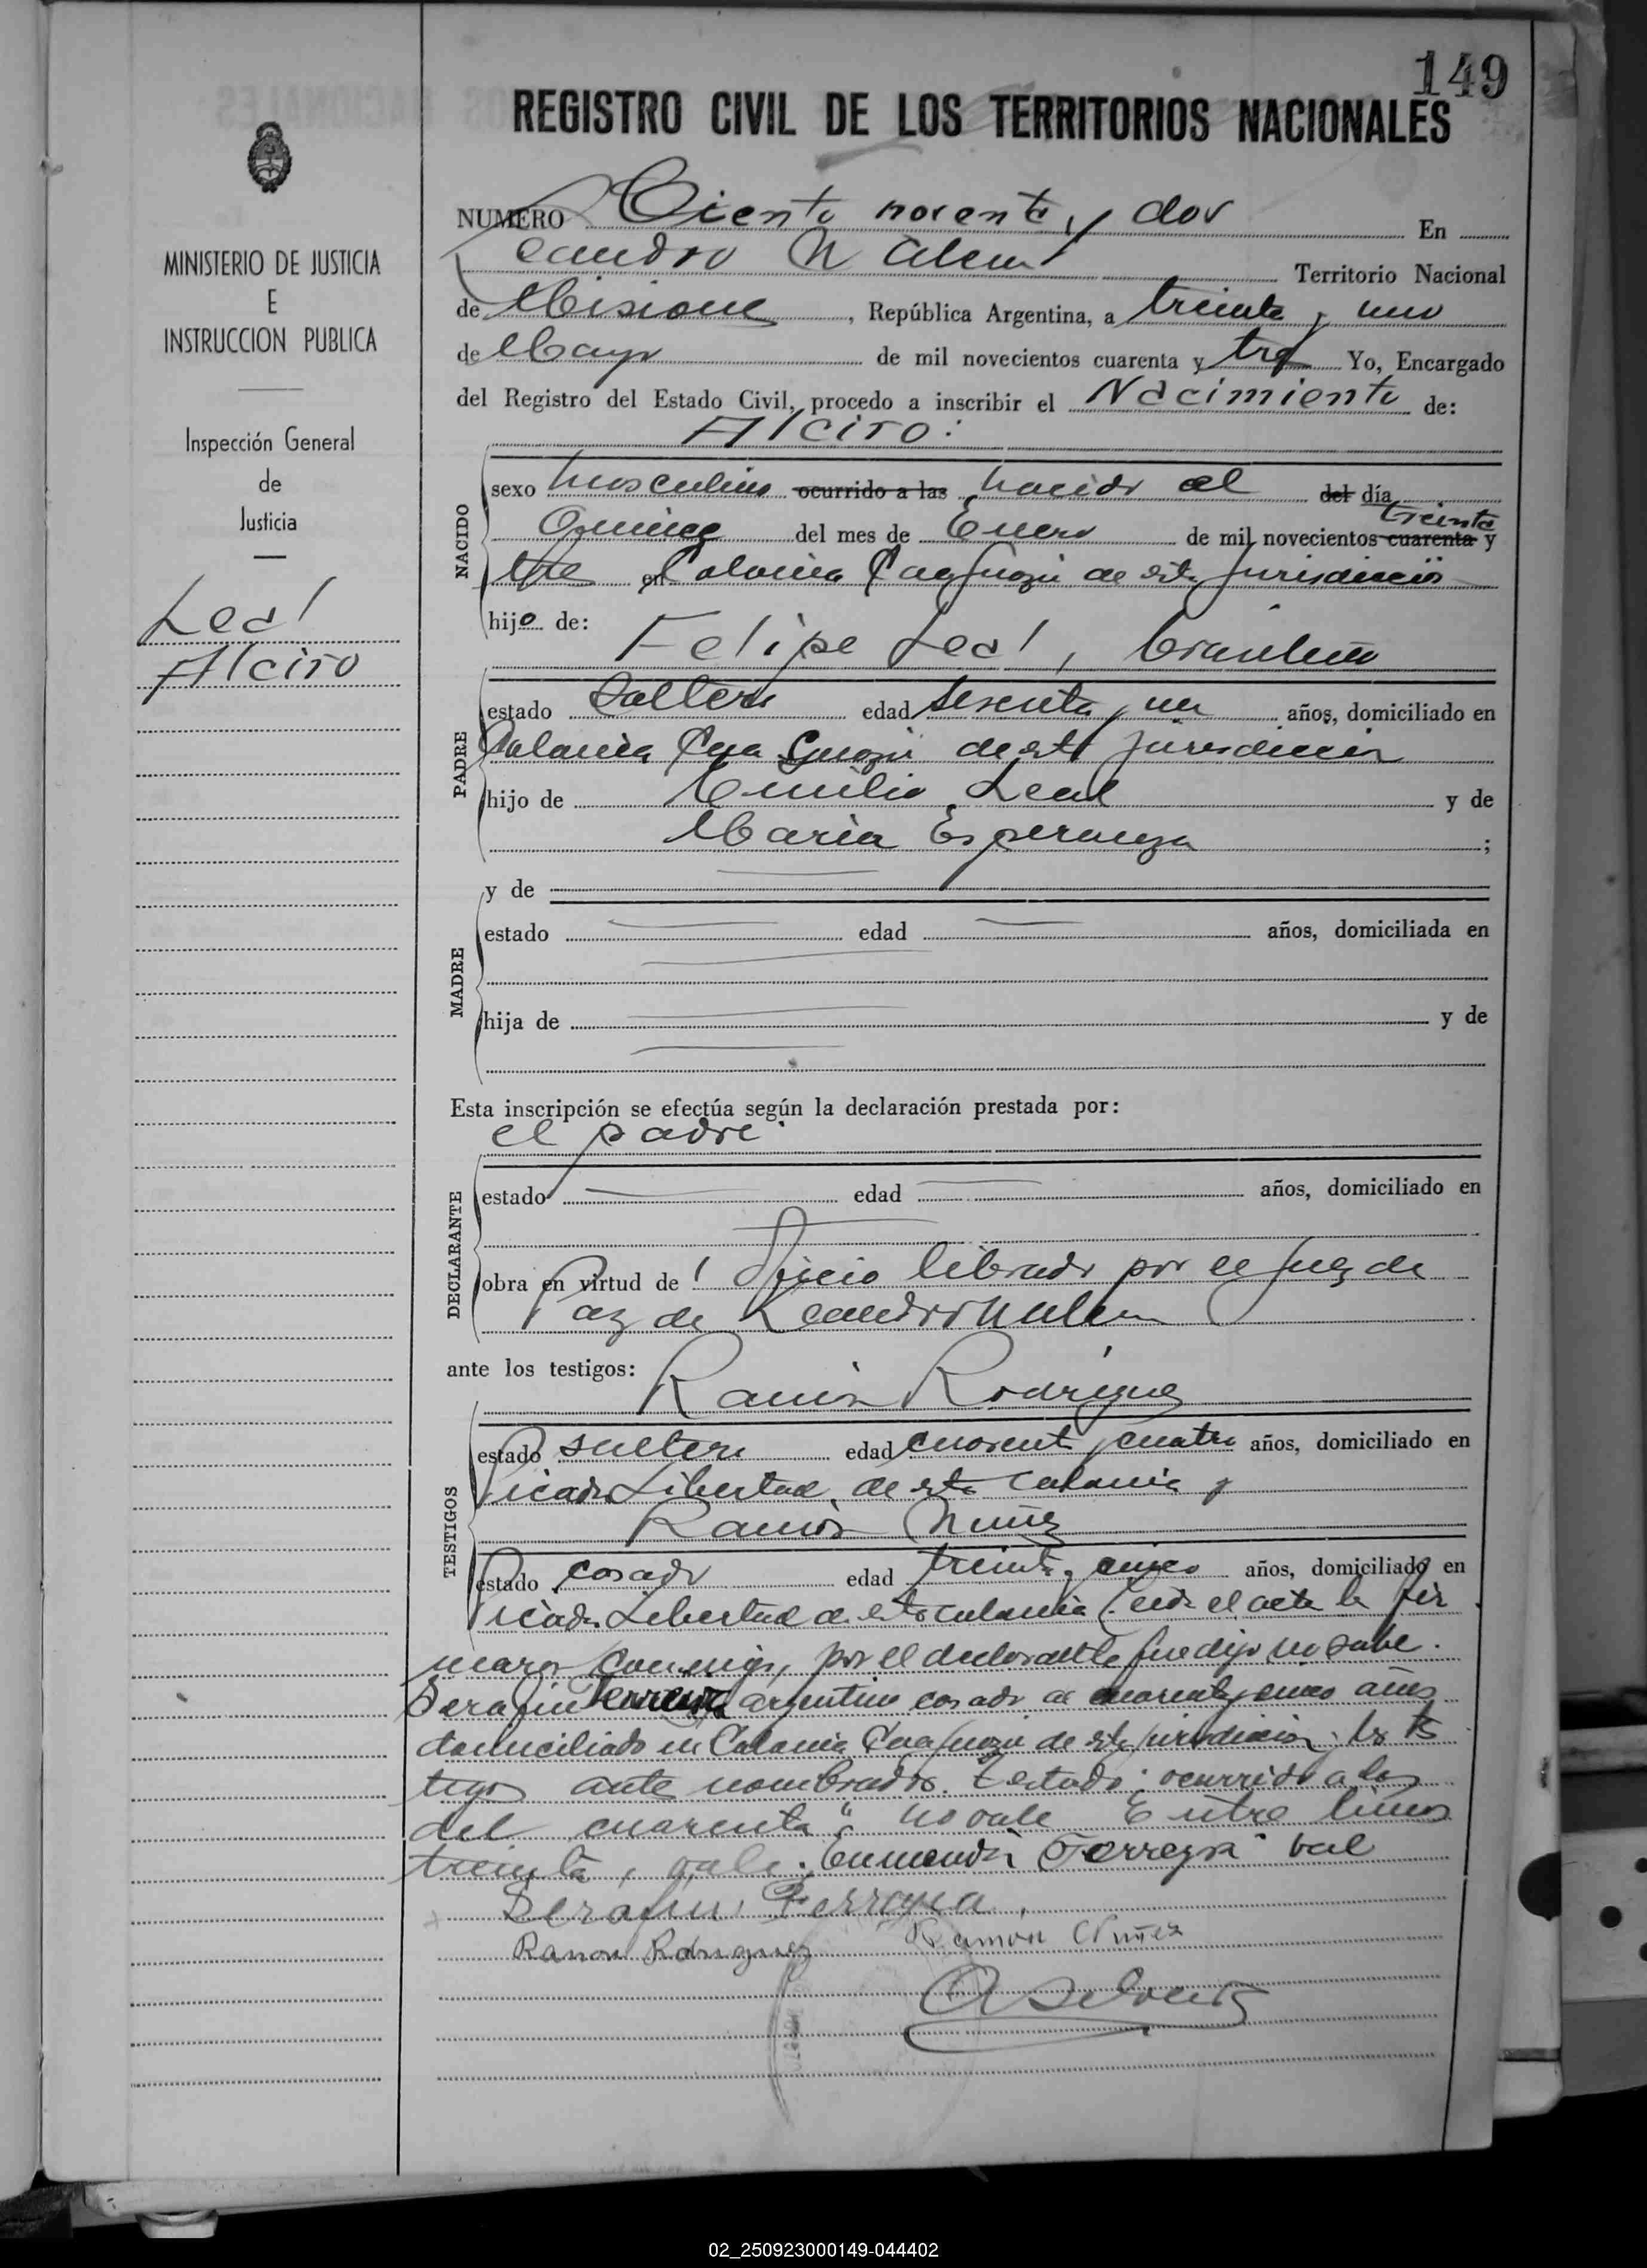 149
REGISTRO CIVIL DE LOS TERRITORIOS NACIONALES
MINISTERIO DE JUSTICIA
E
INSTRUCCION PUBLICA
Inspección General
de
Justicia
Leal
Alciro
NUMERO Ciento noventa y dos En
Leandro N Alem Territorio Nacional
de Misiones, República Argentina, a treinta y uno
de Mayo de mil novecientos cuarenta y tres Yo, Encargado
del Registro del Estado Civil, procedo a inscribir el Nacimiento de:
Alciro:
NACIDO
sexo masculino ocurrido a las nacido el del día
treinta
Quince del mes de Enero de mil novecientos cuarenta y
tres en Colonia de esta jurisdicción
hijo de:
Felipe Leal, brasileño
PADRE
estado soltero edad sesenta y un años, domiciliado en
Colonia de esta jurisdicción
hijo de Emilio Leal y de
Maria Esperanza ;
MADRE
y de
estado edad años, domiciliada en
hija de y de
Esta inscripción se efectúa según la declaración prestada por:
el padre
DECLARANTE
estado edad años, domiciliado en
obra en virtud de Oficio librado por el Juez de
Paz de Leandro N Alem
ante los testigos:
Ramón Rodriguez
TESTIGOS
estado soltero edad cuarenta y cuatro años, domiciliado en
Picada Libertad de esta colonia y
Ramón Nuñez
estado casado edad treinta y cinco años, domiciliado en
Picada Libertad de esta colonia Leida el acta la fir
maron conmigo, por el declarante que dijo no sabe.
Serafin Ferreyra argentino casado de cuarenta y cinco años
domiciliado en Colonia de esta jurisdicción y los tes
tigos ante nombrados. Testado: ocurrido a las
del cuarenta" no vale Entre lineas
treinta, vale. Enmendado Ferreyra vale
Serafin Ferreyra
Ramon Rodriguez Ramón Nuñez
02_250923000149-044402